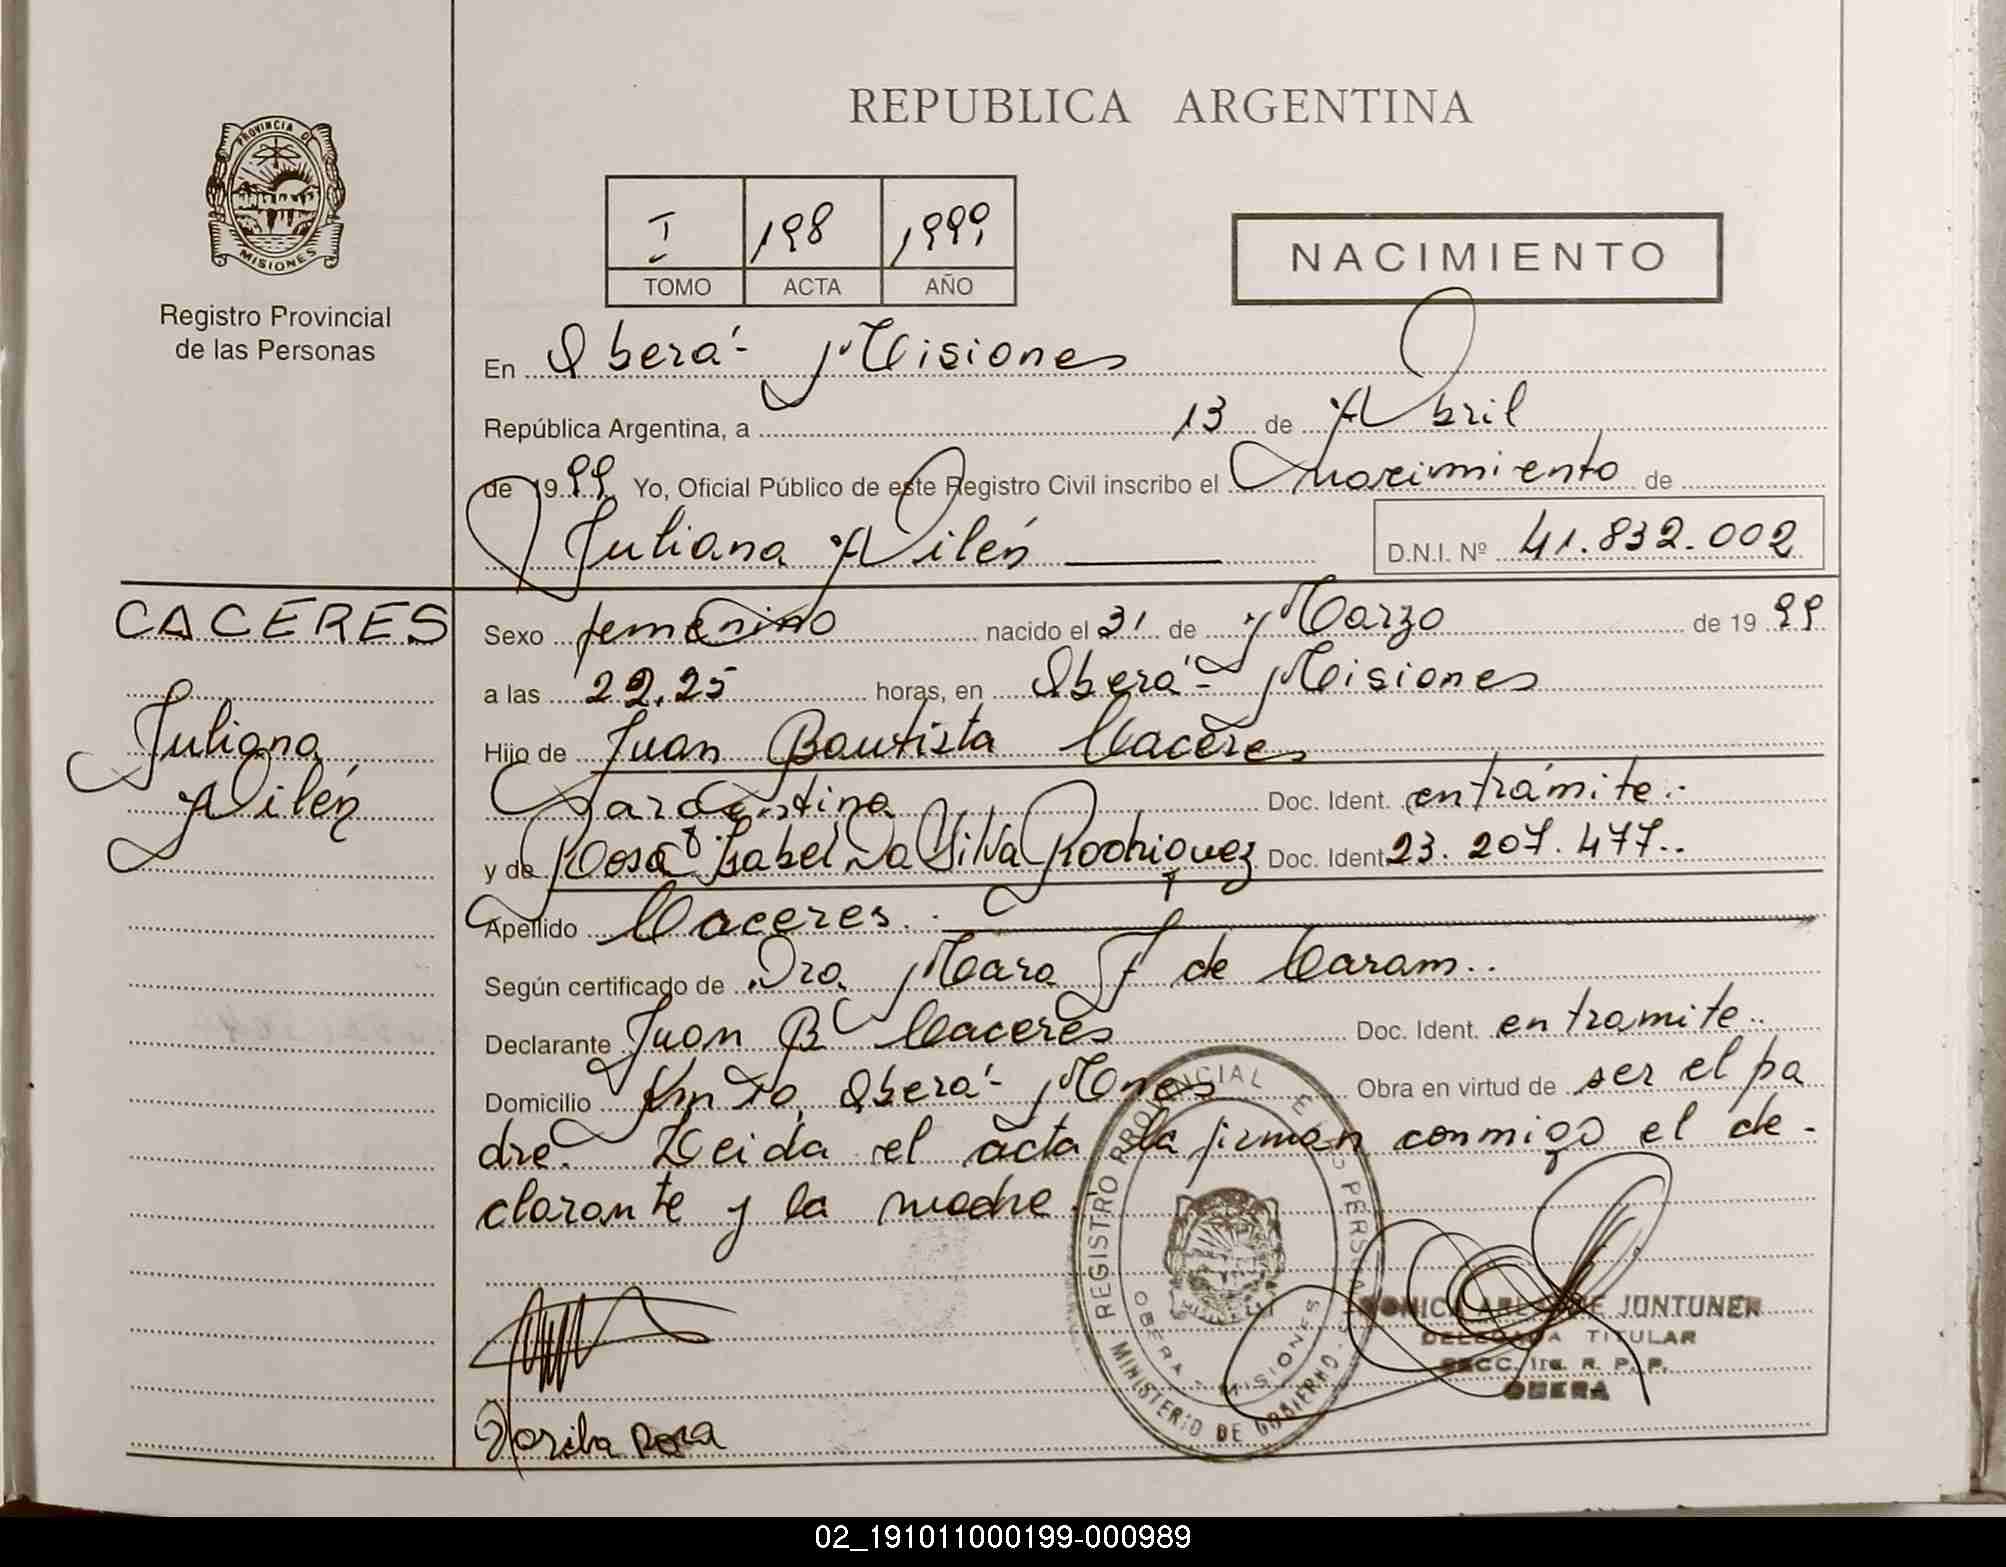 REPUBLICA ARGENTINA
PROVINCIA DE
MISIONES
Registro Provincial
de las Personas
I 198 1999
TOMO ACTA AÑO
NACIMIENTO
En Oberá - Misiones
República Argentina, a 13 de Abril
de 1999 Yo, Oficial Público de este Registro Civil inscribo el Nacimiento de
Juliana Ailén D.N.I. Nº 41.832.002
CACERES
Juliana
Ailén
Sexo femenino nacido el 31 de Marzo de 1999
a las 22.25 horas, en Oberá - Misiones
Hijo de Juan Bautista Caceres
Doc. Ident. en trámite.-
y de Rosa Isabel Da Silva Rodriguez Doc. Ident. 23.207.477..
Apellido Caceres.
Según certificado de Dra. Mara F de Caram..
Declarante Juan B Caceres Doc. Ident. en tramite..
Domicilio Oberá - Mnes Obra en virtud de ser el pa
dre. Leida el acta la firman conmigo el de-
clarante y la madre.
REGISTRO PROVINCIAL DE PERSONAS
OBERA - MISIONES
MINISTERIO DE GOBIERNO
DE JUNTUNEN
DELEGADA TITULAR
SECC. 1ra. R. P. P.
OBERA
Rosa
02_191011000199-000989